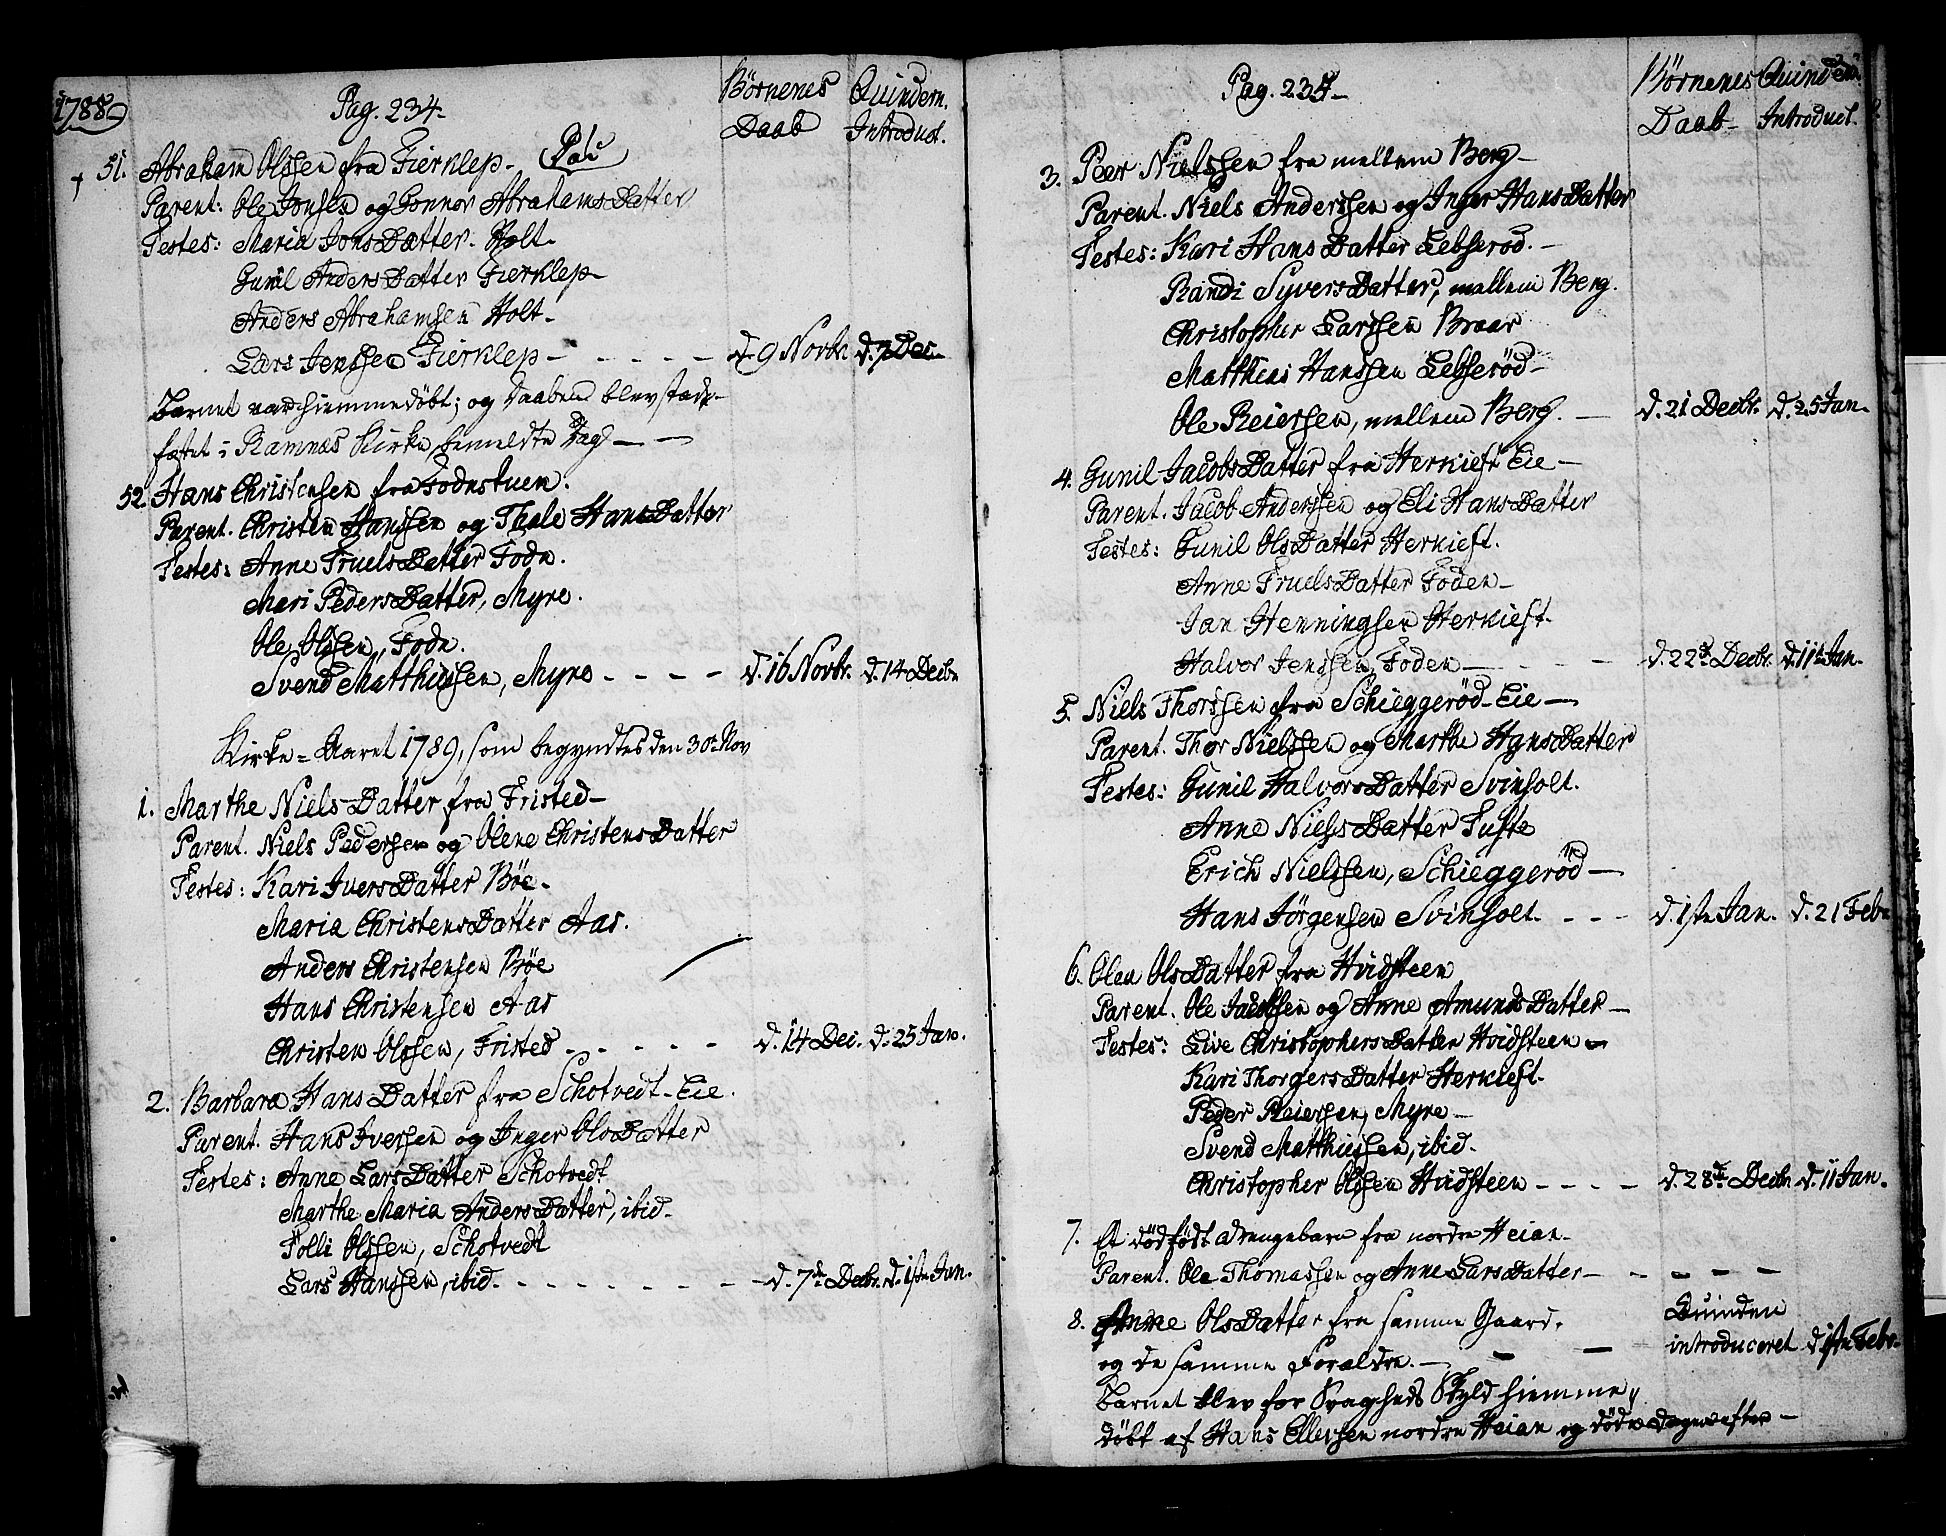 1788
Pag. 234.
Børnenes Daab
Quindern. Introduct.
51. Abraham Olssen fra Fierklep.
Parent: Ole Jonsen og Gonnor Abrahams Datter
Testes: Maria Jons Datter Holt.
Gunil Anders Datter Fierklep
Anders Abrahamsen Holt.
Lars Jenssen Fierklep - - - - - d. 9 Novbr. d. 7 Dec.
Barnet var hiemmedøbt; og Daaben blev stad-
fæstet i Ramnæs Kirke bemeldte Dag
52. Hans Christensen fra Fodnstuen.
Parent. Christen Hanssen og Thale Hans Datter
Testes: Anne Truels Datter Fodn.
Mari Peders Datter, Myre.
Ole Olssen, Fodn.
Svend Matthiessen, Myre - - - - d. 16 Novbr. d. 14 Decbr
Kirke-Aaret 1789, som begyndtes den 30te Nov
1. Marthe Niels Datter fra Fristed
Parent. Niels Pedersen og Olene Christens Datter
Testes: Kari Ivers Datter Bøe.
Maria Christens Datter Aas.
Anders Christensen Bøe
Hans Christensen Aas
Christen Olssen, Fristed - - - - - d. 14 Dec. d. 25 Jan.
2. Barbara Hans Datter fra Schotvedt-Eie.
Parent. Hans Iversen og Inger Ols Datter
Testes: Anne Lars Datter Schotvedt
Marthe Maria Anders Datter, ibid.
Tolli Olssen, Schotvedt
Lars Hanssen, ibid. - - - - - - - d. 7de Decbr. d. 1ste Jan.
Pag. 235
Børnenes Daab
Quindern. Introduct.
3. Peer Nielssen fra mellem Berg
Parent. Niels Anderssen og Inger Hans Datter
Testes: Kari Hans Datter Lebserød.
Randi Syvers Datter, mellem Berg.
Christopher Larssen Braar
Matthias Hanssen Lebserød
Ole Reierssen, mellem Berg. - d. 21 Decbr. d. 25 Jan.
4. Gunil Jacobs Datter fra Herkieft Eie
Parent. Jacob Anderssen og Eli Hans Datter
Testes: Gunil Ols Datter Herkieft.
Anne Truels Datter Foden
Jan Henningsen Herkieft.
Halvor Jenssen, Foden - - - - d. 22de Decbr. d. 11te Jan.
5. Niels Thorssen fra Schieggerød-Eie
Parent. Thor Nielssen og Marthe Hans Datter
Testes: Gunil Halvors Datter Svinholt.
Anne Niels Datter Tufte
Erich Nielssen, Schieggerød
Hans Jörgensen Svinholt. - - - d. 1ste Jan. d. 21 Febr.
6. Olea Ols Datter fra Hvidsteen
Parent. Ole Jacobsen og Anne Amunds Datter
Testes: Live Christophers Datter Hvidsteen
Kari Thorgers Datter Herkieft.
Peder Reiersen, Myre
Svend Matthiessen, ibid.
Christopher Olssen Hvidsteen - - - - d. 28de Decbr d. 11 Jan.
7. Et dødfødt Drengebarn fra nordre Heian.
Parent. Ole Thomassen og Anne Lars Datter - - - - -
8. Anne Ols Datter fra samme Gaard.
og de samme Forældre. - - - Quinden introduceret d. 1ste Febr.
Barnet blev for Svagheds Skyld hiemme-
døbt af Hans Ellefsen nordre Heian og døde Dagen efter